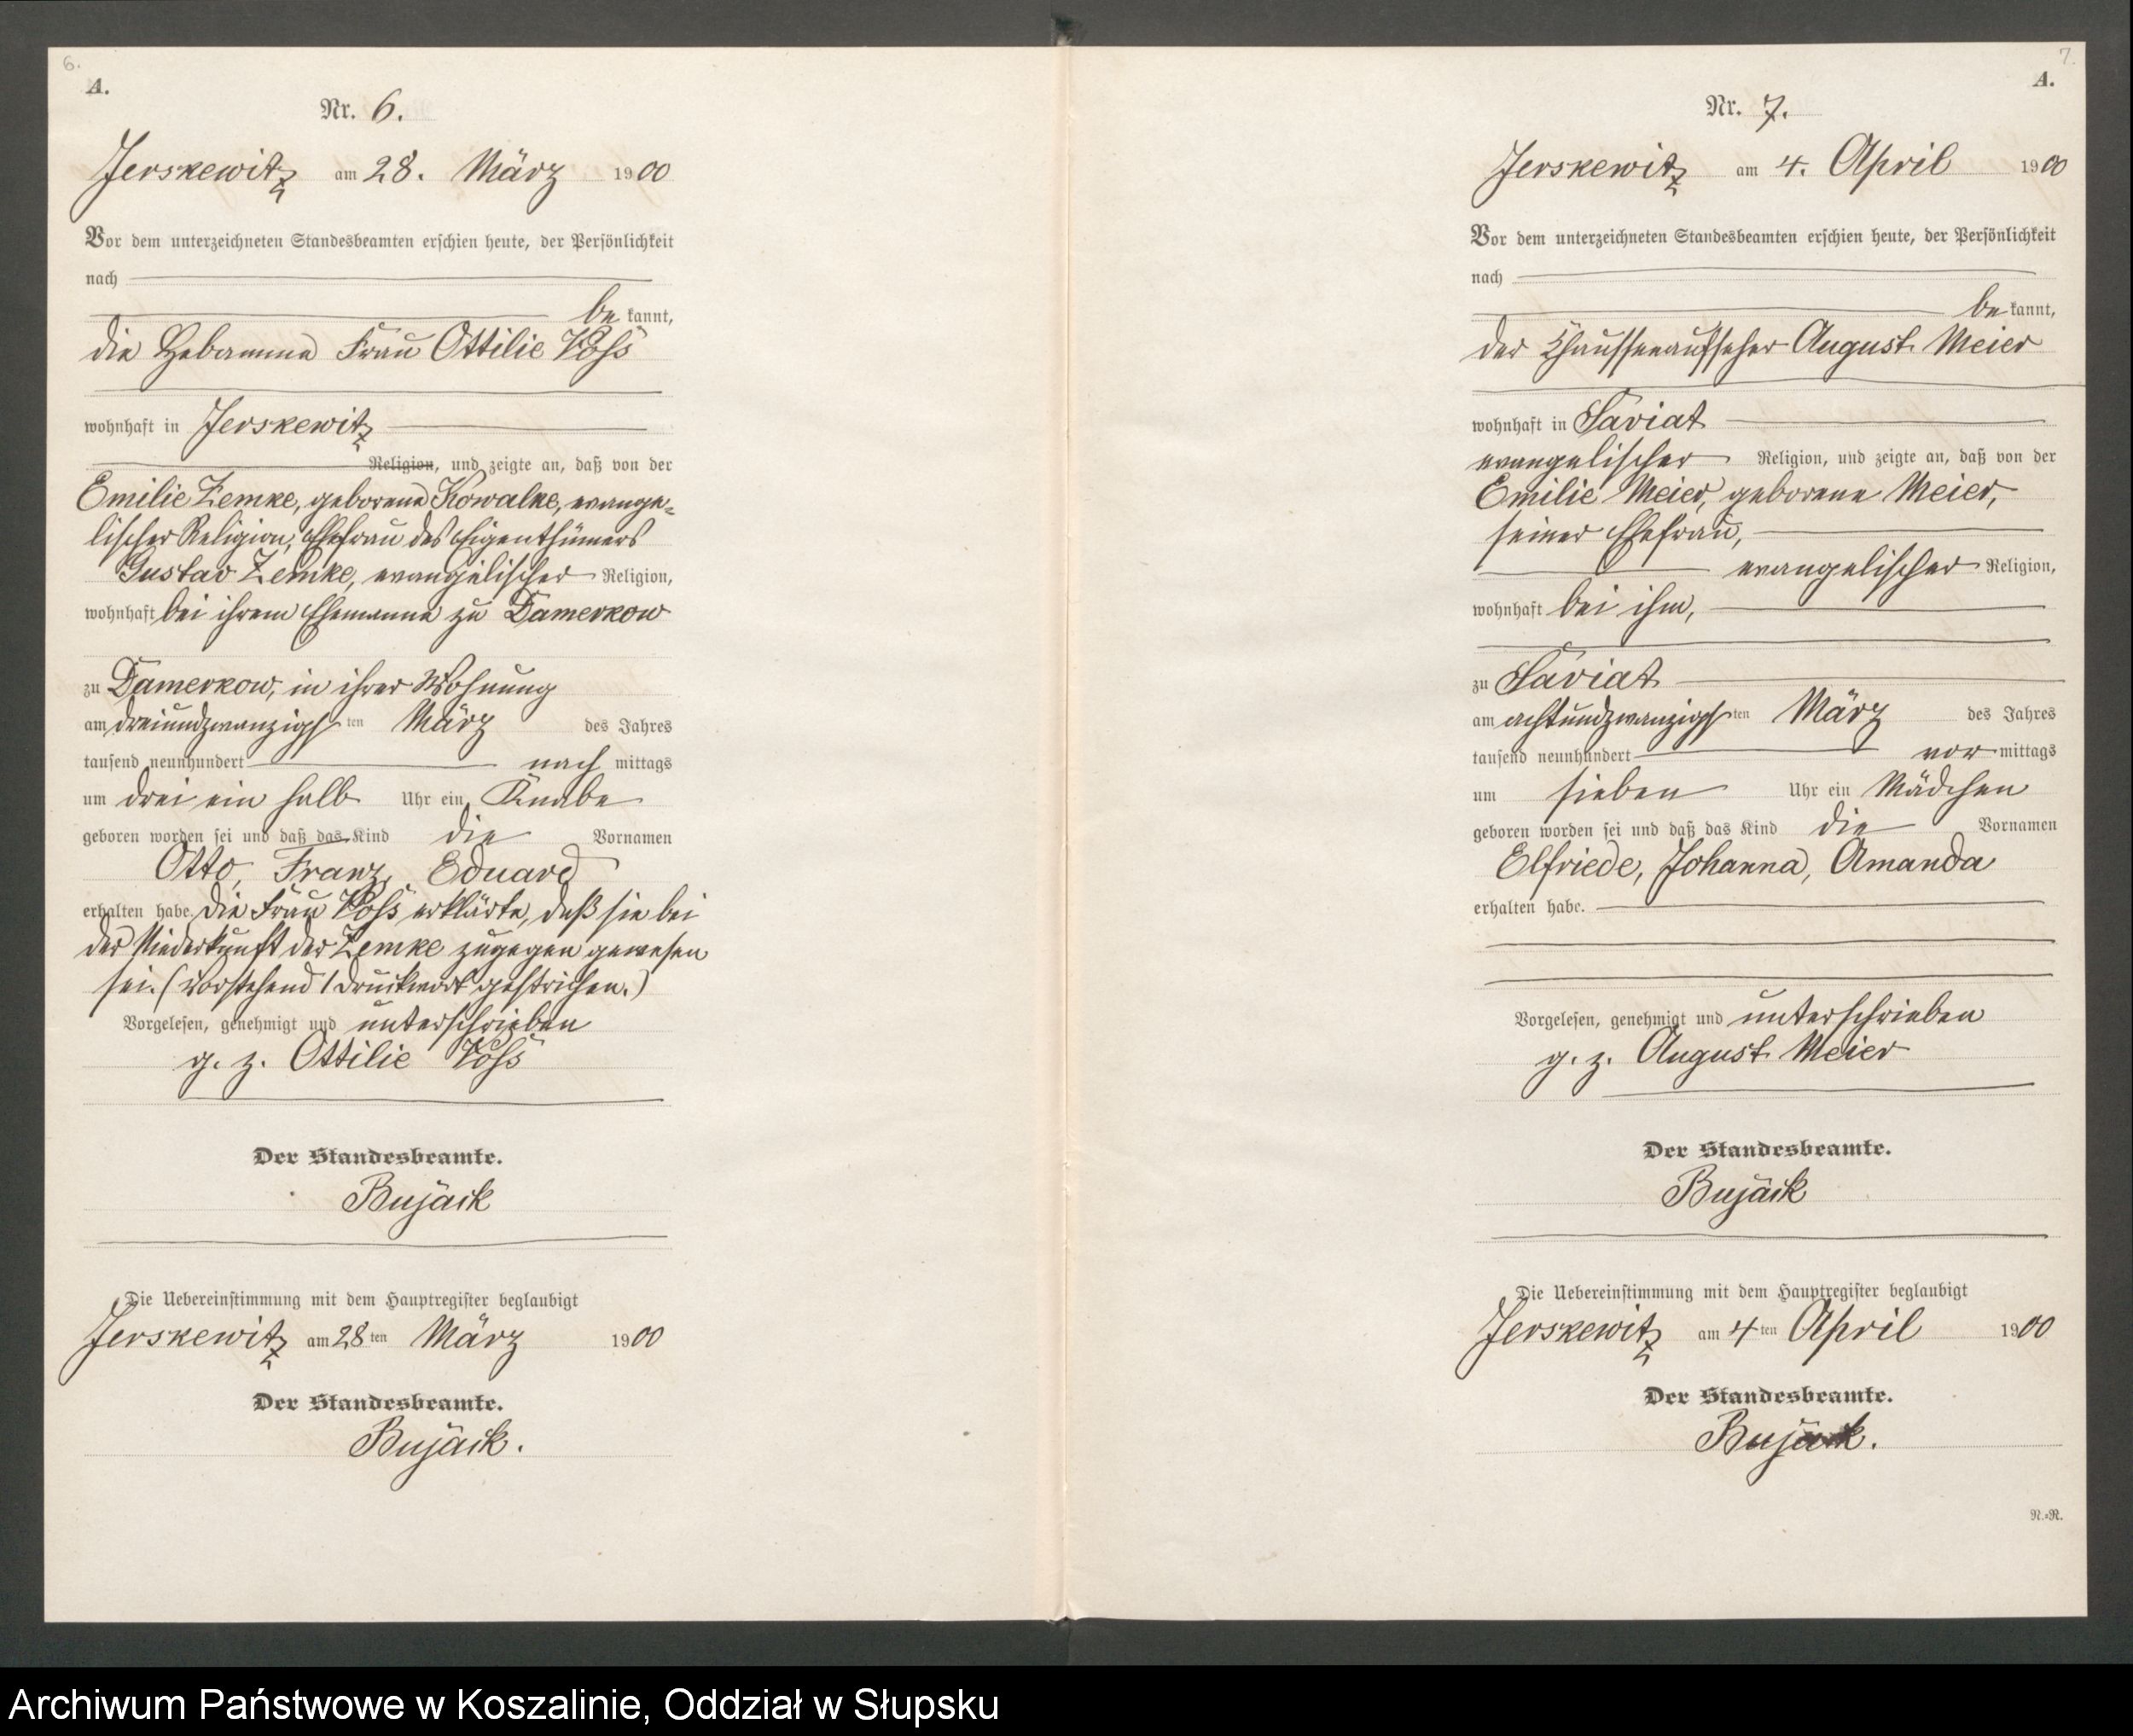 6.
A.
Nr. 6.
Jerskewitz am 28. März 1900
Vor dem unterzeichneten Standesbeamten erschien heute, der Persönlichkeit
nach
be kannt,
die Hebamme Frau Ottilie Voß
wohnhaft in Jerskewitz
Religion, und zeigte an, daß von der
Emilie Zemke, geborene Kowalke, evange-
lischer Religion, Ehefrau des Eigenthümers
Gustav Zemke, evangelischer Religion,
wohnhaft bei ihrem Ehemanne zu Damerkow
zu Damerkow, in ihrer Wohnung
am dreiundzwanzigsten März des Jahres
tausend neunhundert nach mittags
um drei ein halb Uhr ein Knabe
geboren worden sei und daß das Kind die Vornamen
Otto, Franz, Eduard
erhalten habe. Die Frau Voß erklärte, daß sie bei
der Niederkunft der Zemke zugegen gewesen
sei. (Vorstehend 1 Druckwort gestrichen.)
Vorgelesen, genehmigt und unterschrieben
g. z. Ottilie Voß
Der Standesbeamte.
Bujack
Die Uebereinstimmung mit dem Hauptregister beglaubigt
Jerskewitz am 28ten März 1900
Der Standesbeamte.
Bujack.
7.
A.
Nr. 7.
Jerskewitz am 4. April 1900
Vor dem unterzeichneten Standesbeamten erschien heute, der Persönlichkeit
nach
be kannt,
der Chausseeaufseher August Meier
wohnhaft in Sariat
evangelischer Religion, und zeigte an, daß von der
Emilie Meier, geborene Meier,
seiner Ehefrau,
evangelischer Religion,
wohnhaft bei ihm,
zu Sariat
am achtundzwanzigsten März des Jahres
tausend neunhundert vor mittags
um sieben Uhr ein Mädchen
geboren worden sei und daß das Kind die Vornamen
Elfriede, Johanna, Amanda
erhalten habe.
Vorgelesen, genehmigt und unterschrieben
g. z. August Meier
Der Standesbeamte.
Bujack
Die Uebereinstimmung mit dem Hauptregister beglaubigt
Jerskewitz am 4ten April 1900
Der Standesbeamte.
Bujack.
N.=N.
Archiwum Państwowe w Koszalinie, Oddział w Słupsku